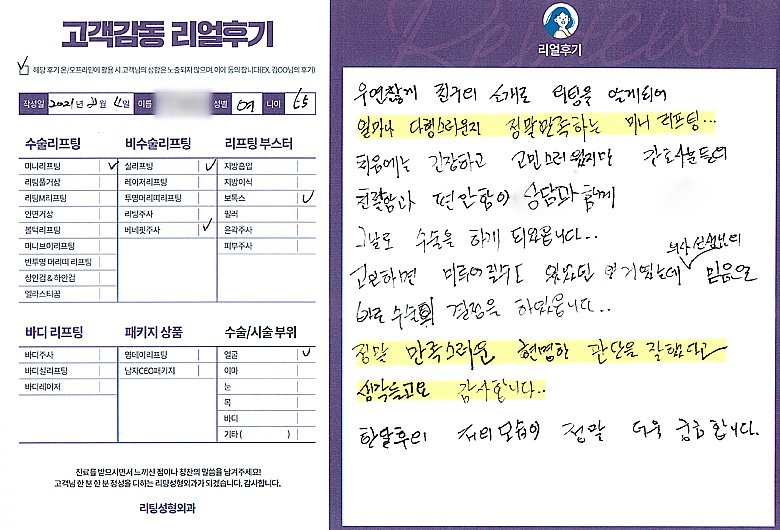 고객감동 리얼후기
해당 후기 온/오프라인에 활용 시 고객님의 성함은 노출되지 않으며, 이에 동의 합니다(EX. 김OO님의 후기)
작성일 2021년 11월 11일 이름 성별 여 나이 65
수술리프팅
미니리프팅
리팅풀거상
리팅M리프팅
안면거상
볼턱리프팅
미니브이리프팅
반투명 머리띠 리프팅
상안검 & 하안검
엘러스티꿈
비수술리프팅
실리프팅
레이저리프팅
투명머리띠리프팅
리팅주사
베네핏주사
리프팅 부스터
지방흡입
지방이식
보톡스
필러
윤곽주사
피부주사
바디 리프팅
바디주사
바디실리프팅
바디레이저
패키지 상품
영데이리프팅
남자CEO패키지
수술/시술 부위
얼굴
이마
눈
목
바디
기타 ( )
진료를 받으시면서 느끼신 점이나 칭찬의 말씀을 남겨주세요!
고객님 한 분 한 분 정성을 다하는 리팅성형외과가 되겠습니다. 감사합니다.
리팅성형외과
Review
리얼후기
우연찮게 친구의 소개로 리팅을 알게되어
얼마나 다행스러운지 정말만족하는 미니 리프팅...
처음에는 긴장하고 고민스러웠지만 간호사분들의
친절함과 편안함이 상담과 함께
그날로 수술을 하게 되었읍니다...
의사선생님의
고민하면 미루어질수도 있었던 믿음으로
바로 수술 결정을 하였읍니다..
정말 만족스러운 현명한 판단을 잘했다고
생각들고요 감사합니다..
한달후의 저의 모습이 정말 더욱 궁금합니다.